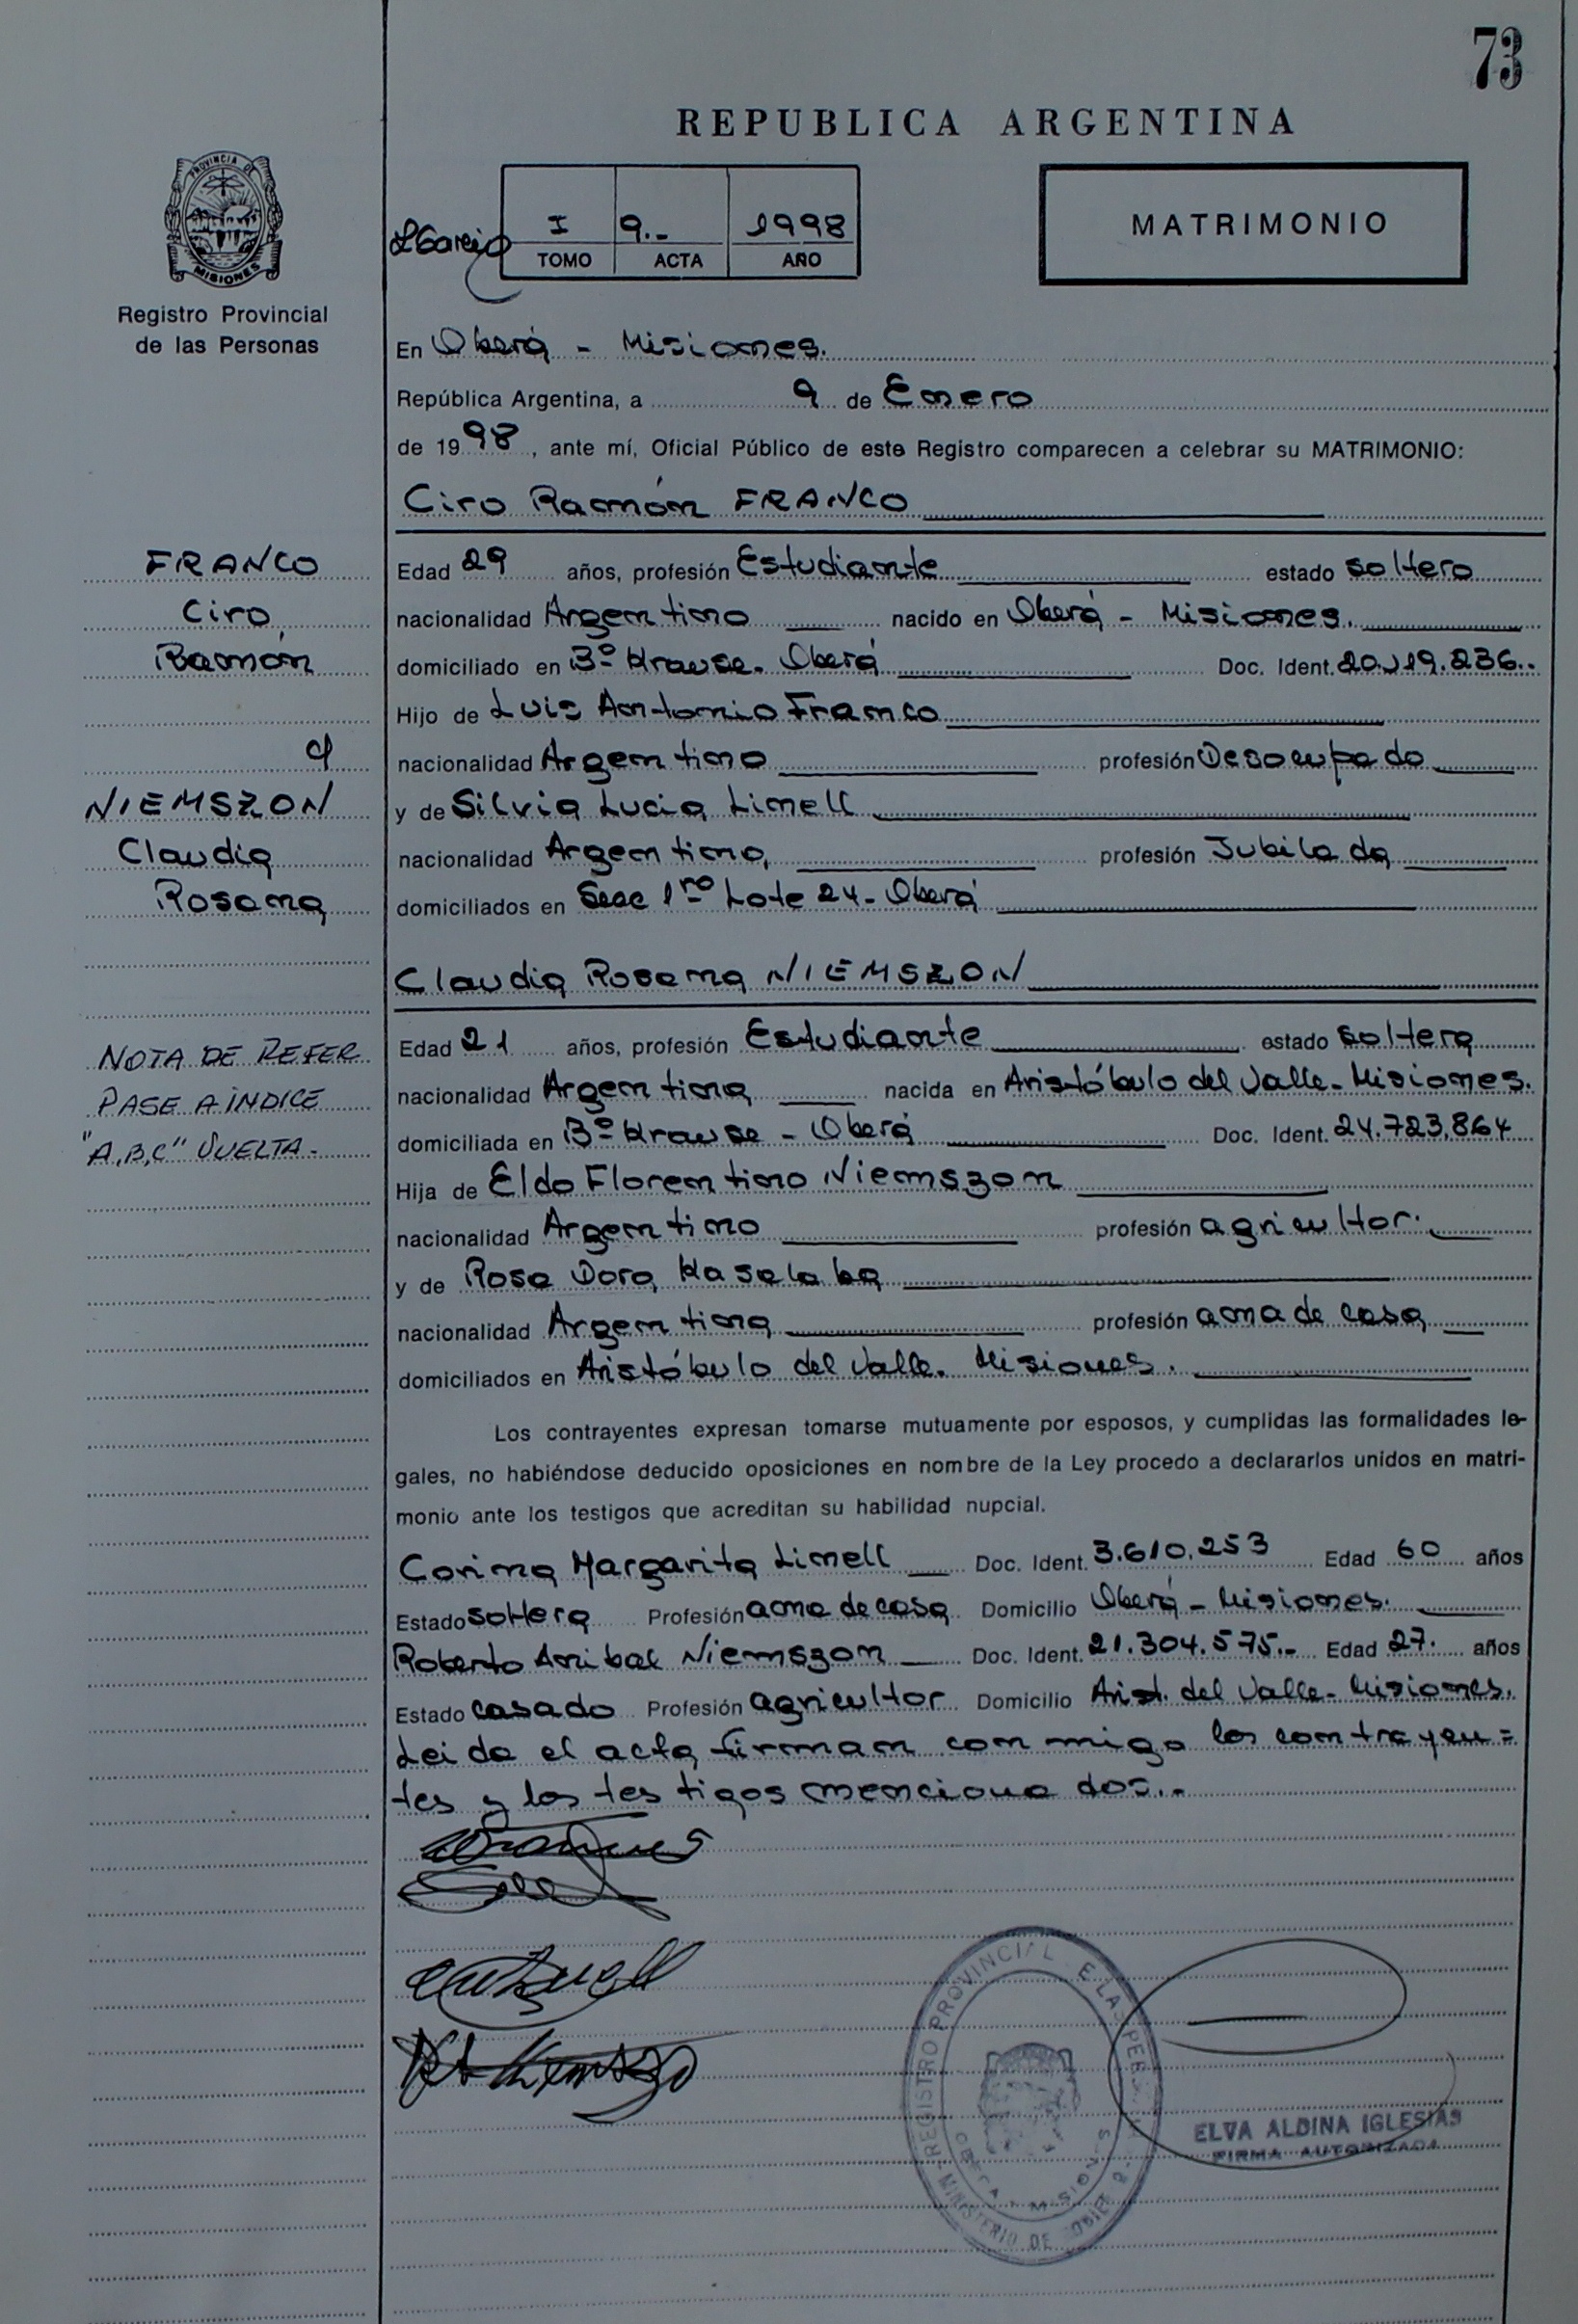 73
REPUBLICA ARGENTINA
PROVINCIA DE
MISIONES
Registro Provincial
de las Personas
I 9.- 1998
TOMO ACTA AÑO
MATRIMONIO
En Oberá - Misiones.
República Argentina, a 9 de Enero
de 1998, ante mí, Oficial Público de este Registro comparecen a celebrar su MATRIMONIO:
Ciro Ramón FRANCO
FRANCO
Ciro
Ramón
y
NIEMSZON
Claudia
Rosana
NOTA DE REFER
PASE A INDICE
"A,B,C" VUELTA-
Edad 29 años, profesión Estudiante estado soltero
nacionalidad Argentino nacido en Oberá - Misiones.
domiciliado en Bº Krause. Oberá Doc. Ident. 20.119.236..
Hijo de Luis Antonio Franco
nacionalidad Argentino profesión Desocupado
y de Silvia Lucia Linell
nacionalidad Argentina, profesión Jubilada
domiciliados en Secc 1ra Lote 24- Oberá
Claudia Rosana NIEMSZON
Edad 21 años, profesión Estudiante estado soltera
nacionalidad Argentina nacida en Aristóbulo del Valle- Misiones.
domiciliada en Bº Krause - Oberá Doc. Ident. 24.723.864
Hija de Eldo Florentino Niemszon
nacionalidad Argentino profesión agricultor.
y de Rosa Dora Kasalaba
nacionalidad Argentina profesión ama de casa
domiciliados en Aristóbulo del Valle. Misiones.
Los contrayentes expresan tomarse mutuamente por esposos, y cumplidas las formalidades le-
gales, no habiéndose deducido oposiciones en nombre de la Ley procedo a declararlos unidos en matri-
monio ante los testigos que acreditan su habilidad nupcial.
Corina Margarita Linell Doc. Ident. 3.610.253 Edad 60 años
Estado soltera Profesión ama de casa Domicilio Oberá - Misiones.
Roberto Anibal Niemszon Doc. Ident. 21.304.575.- Edad 27. años
Estado casado Profesión agricultor Domicilio Arist. del Valle- Misiones.
Leida el acta firman conmigo los contrayen=
tes y los testigos mencionados..-
REGISTRO PROVINCIAL DE LAS PERSONAS
MINISTERIO DE GOBIERNO
OBERA - MISIONES
ELVA ALDINA IGLESIAS
FIRMA AUTORIZADA